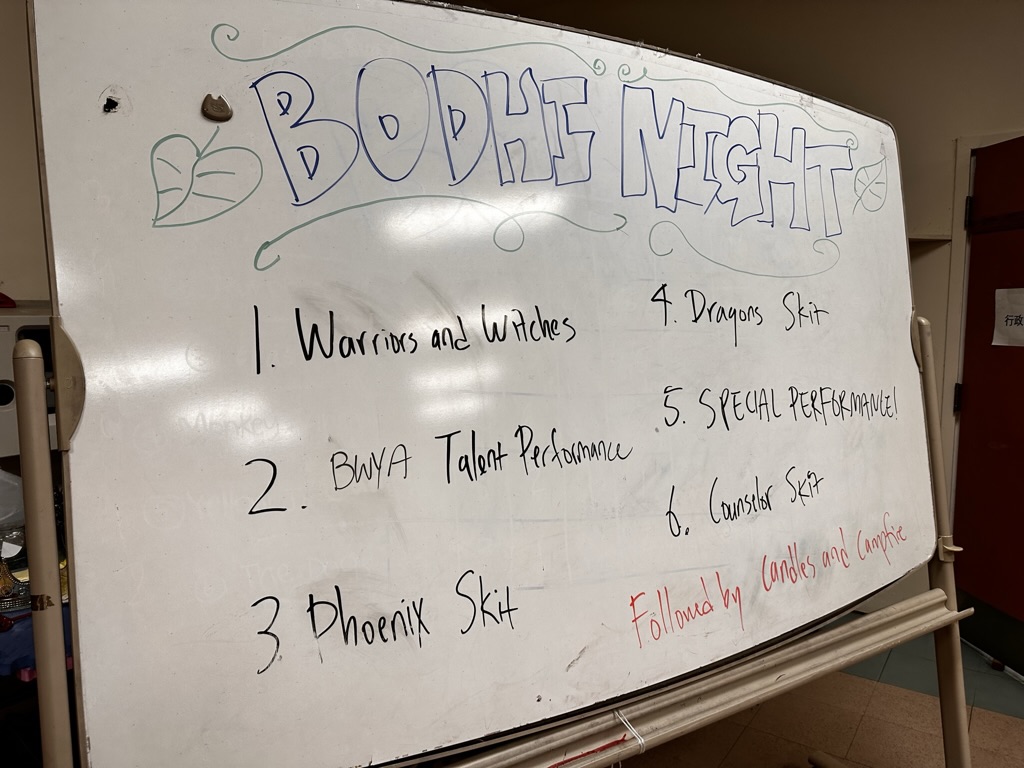 BODHI NIGHT
1. Warriors and Witches
2. BWYA Talent Performance
3 Phoenix Skit
4. Dragons Skit
5. SPECIAL PERFORMANCE!
6. Counselor Skit
Followed by Candles and Campfire
行政